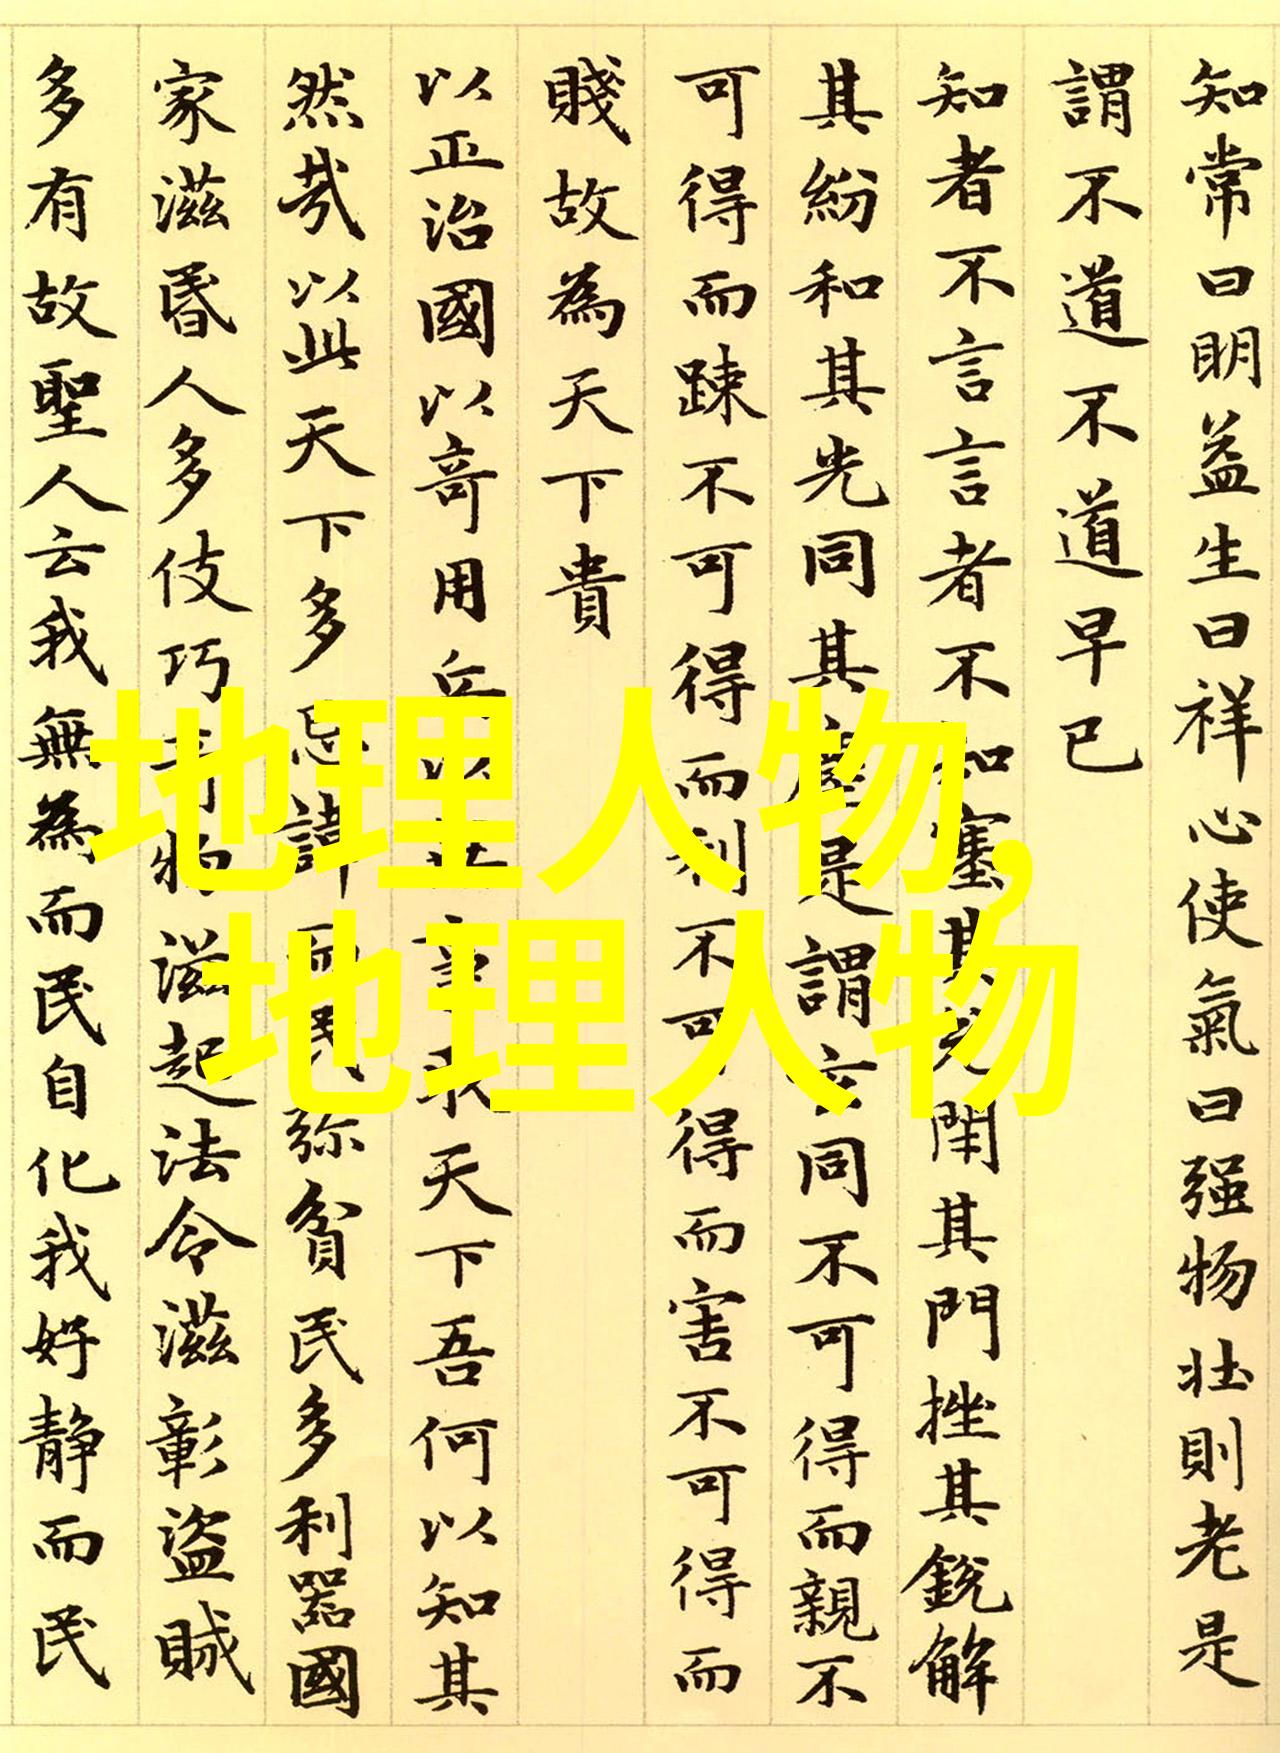 知常曰明益生曰祥心使氣曰强物壮則老是
謂不道不道早已
知者不言言者不知塞其兊閇其門挫其銳解
其紛和其光同其塵是謂玄同不可得而親不
可得而踈不可得而利不可得而害不可得而
賤故為天下貴
以正治國以奇用兵以無事取天下吾何以知其
然哉以此天下多忌諱而民弥貧民多利器國
家滋昬人多伎巧奇物滋起法令滋彰盜賊
多有故聖人云我無為而民自化我好静而民
地理人物,
地理人物